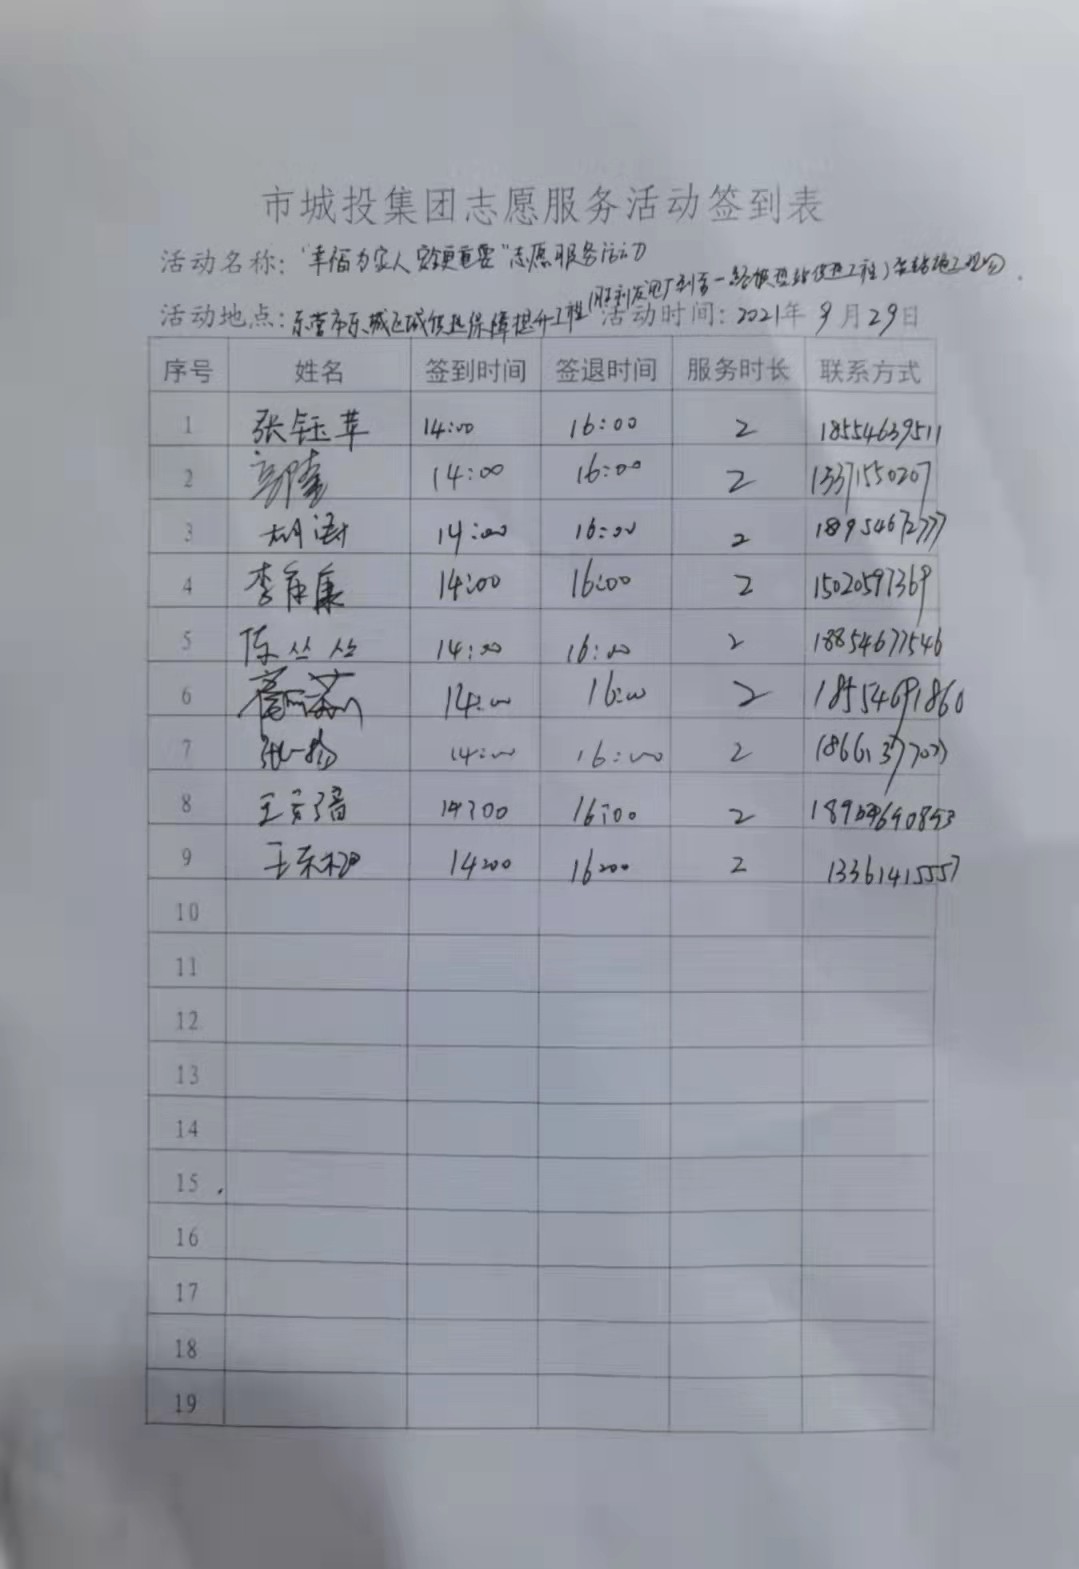 市城投集团志愿服务活动签到表
活动名称："幸福为家人 安全更重要"志愿服务活动
活动地点：东营市东城区域供热保障提升工程(胜利发电厂 活动时间：2021年9月29日
序号 姓名 签到时间 签退时间 服务时长 联系方式
1 张钰苹 14:00 16:00 2 18554639511
2 14:00 16:00 2 13371550207
3 胡涛 14:00 16:00 2 18954672777
4 李康 14:00 16:00 2 15020597369
5 陈丛丛 14:00 16:00 2 18854677546
6 14:00 16:00 2 18554691860
7 张扬 14:00 16:00 2
8 王 14:00 16:00 2
9 王 14:00 16:00 2 13361415557
10
11
12
13
14
15
16
17
18
19